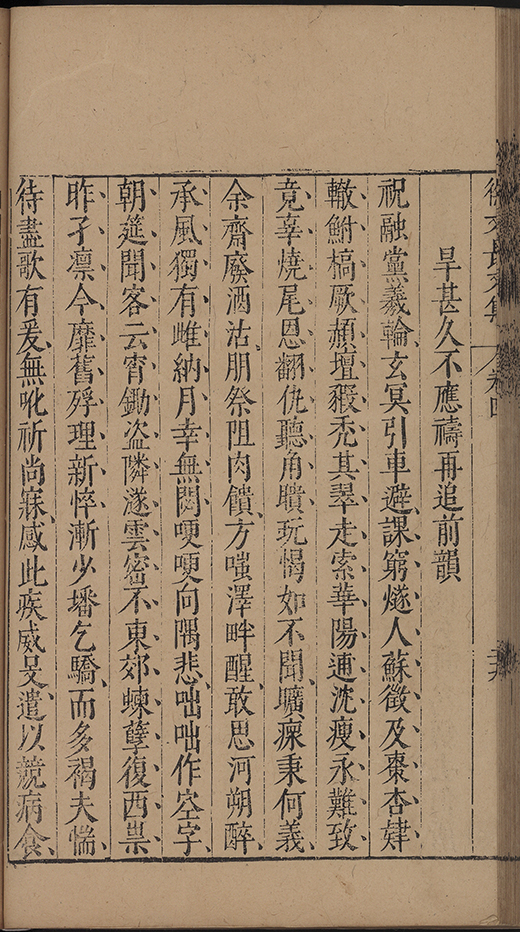 徐文長文集 卷四
旱甚久不應禱再追前韻
祝融黨羲輪玄冥引車避課窮燧人蘇徵及棗杏肄
轍鮒槁厥頳壇豭禿其翠走索華陽逋沈瘦永難致
竟辜燒尾恩翻仇聽角聵玩愒如不聞曠瘝秉何義
余齋廢酒沽朋祭阻肉饋方嗤澤畔醒敢思河朔醉
承風獨有雌納月幸無閟哽哽向隅悲咄咄作空字
朝筵聞客云宵鋤盜隣遂雲密不東郊蝀孽復西祟
昨孑凛今靡舊殍理新悴漸少墦乞驕而多褐夫惴
待盡歌有爰無吪祈尚寐感此疾威旻遣以競病食